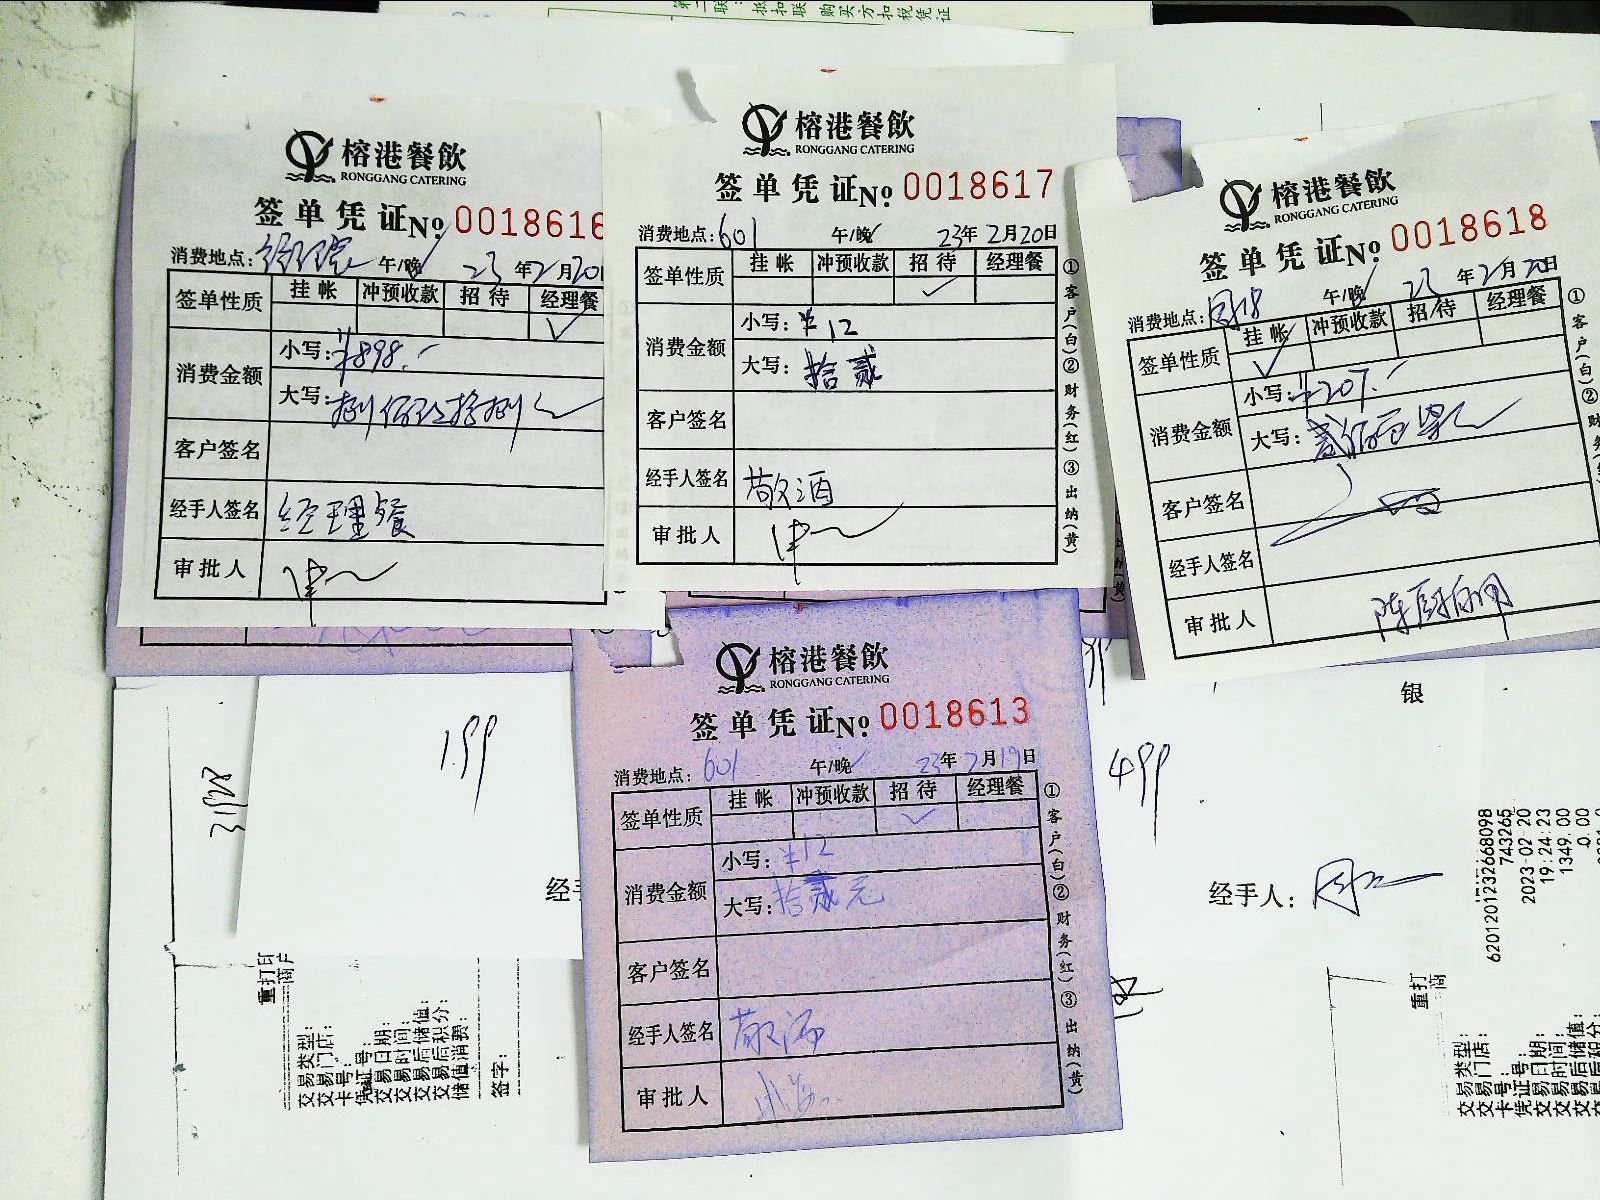 第二联:抵扣联 购买方扣税凭证
榕港餐飲
RONGGANG CATERING
签单凭证No. 0018616
消费地点: 午/晚 23年2月20
签单性质 挂帐 冲预收款 招待 经理餐
消费金额 小写:¥898.-
大写:捌佰玖拾捌
客户签名
经手人签名 经理餐
审批人
榕港餐飲
RONGGANG CATERING
签单凭证No. 0018617
消费地点:601 午/晚 23年2月20日
签单性质 挂帐 冲预收款 招待 经理餐
消费金额 小写:¥12
大写:拾贰
客户签名
经手人签名 敬酒
审批人
①客户(白)②财务(红)③出纳(黄)
榕港餐飲
RONGGANG CATERING
签单凭证No. 0018618
消费地点: 午/晚 23年2月20日
签单性质 挂帐 冲预收款 招待 经理餐
消费金额 小写:¥207.-
大写:贰佰
客户签名
经手人签名
审批人
①客户(白)②财务
榕港餐飲
RONGGANG CATERING
签单凭证No. 0018613
消费地点:601 午/晚 23年2月19日
签单性质 挂帐 冲预收款 招待 经理餐
消费金额 小写:¥12
大写:拾贰元
客户签名
经手人签名 敬酒
审批人
①客户(白)②财务(红)③出纳(黄)
199
经手
499
银
经手人:
6201201232668098
743265
2023-02-20
19:24:23
1349.00
0.00
重打印
商户
交易类型:
交易门店:
卡号:
凭证号:
交易日期:
交易时间:
交易后储值:
交易后积分:
储值消费:
签字:
重打
商
交易类型:
交易门店:
卡号:
凭证号:
交易日期:
交易时间:
交易后储值:
交易后积分: